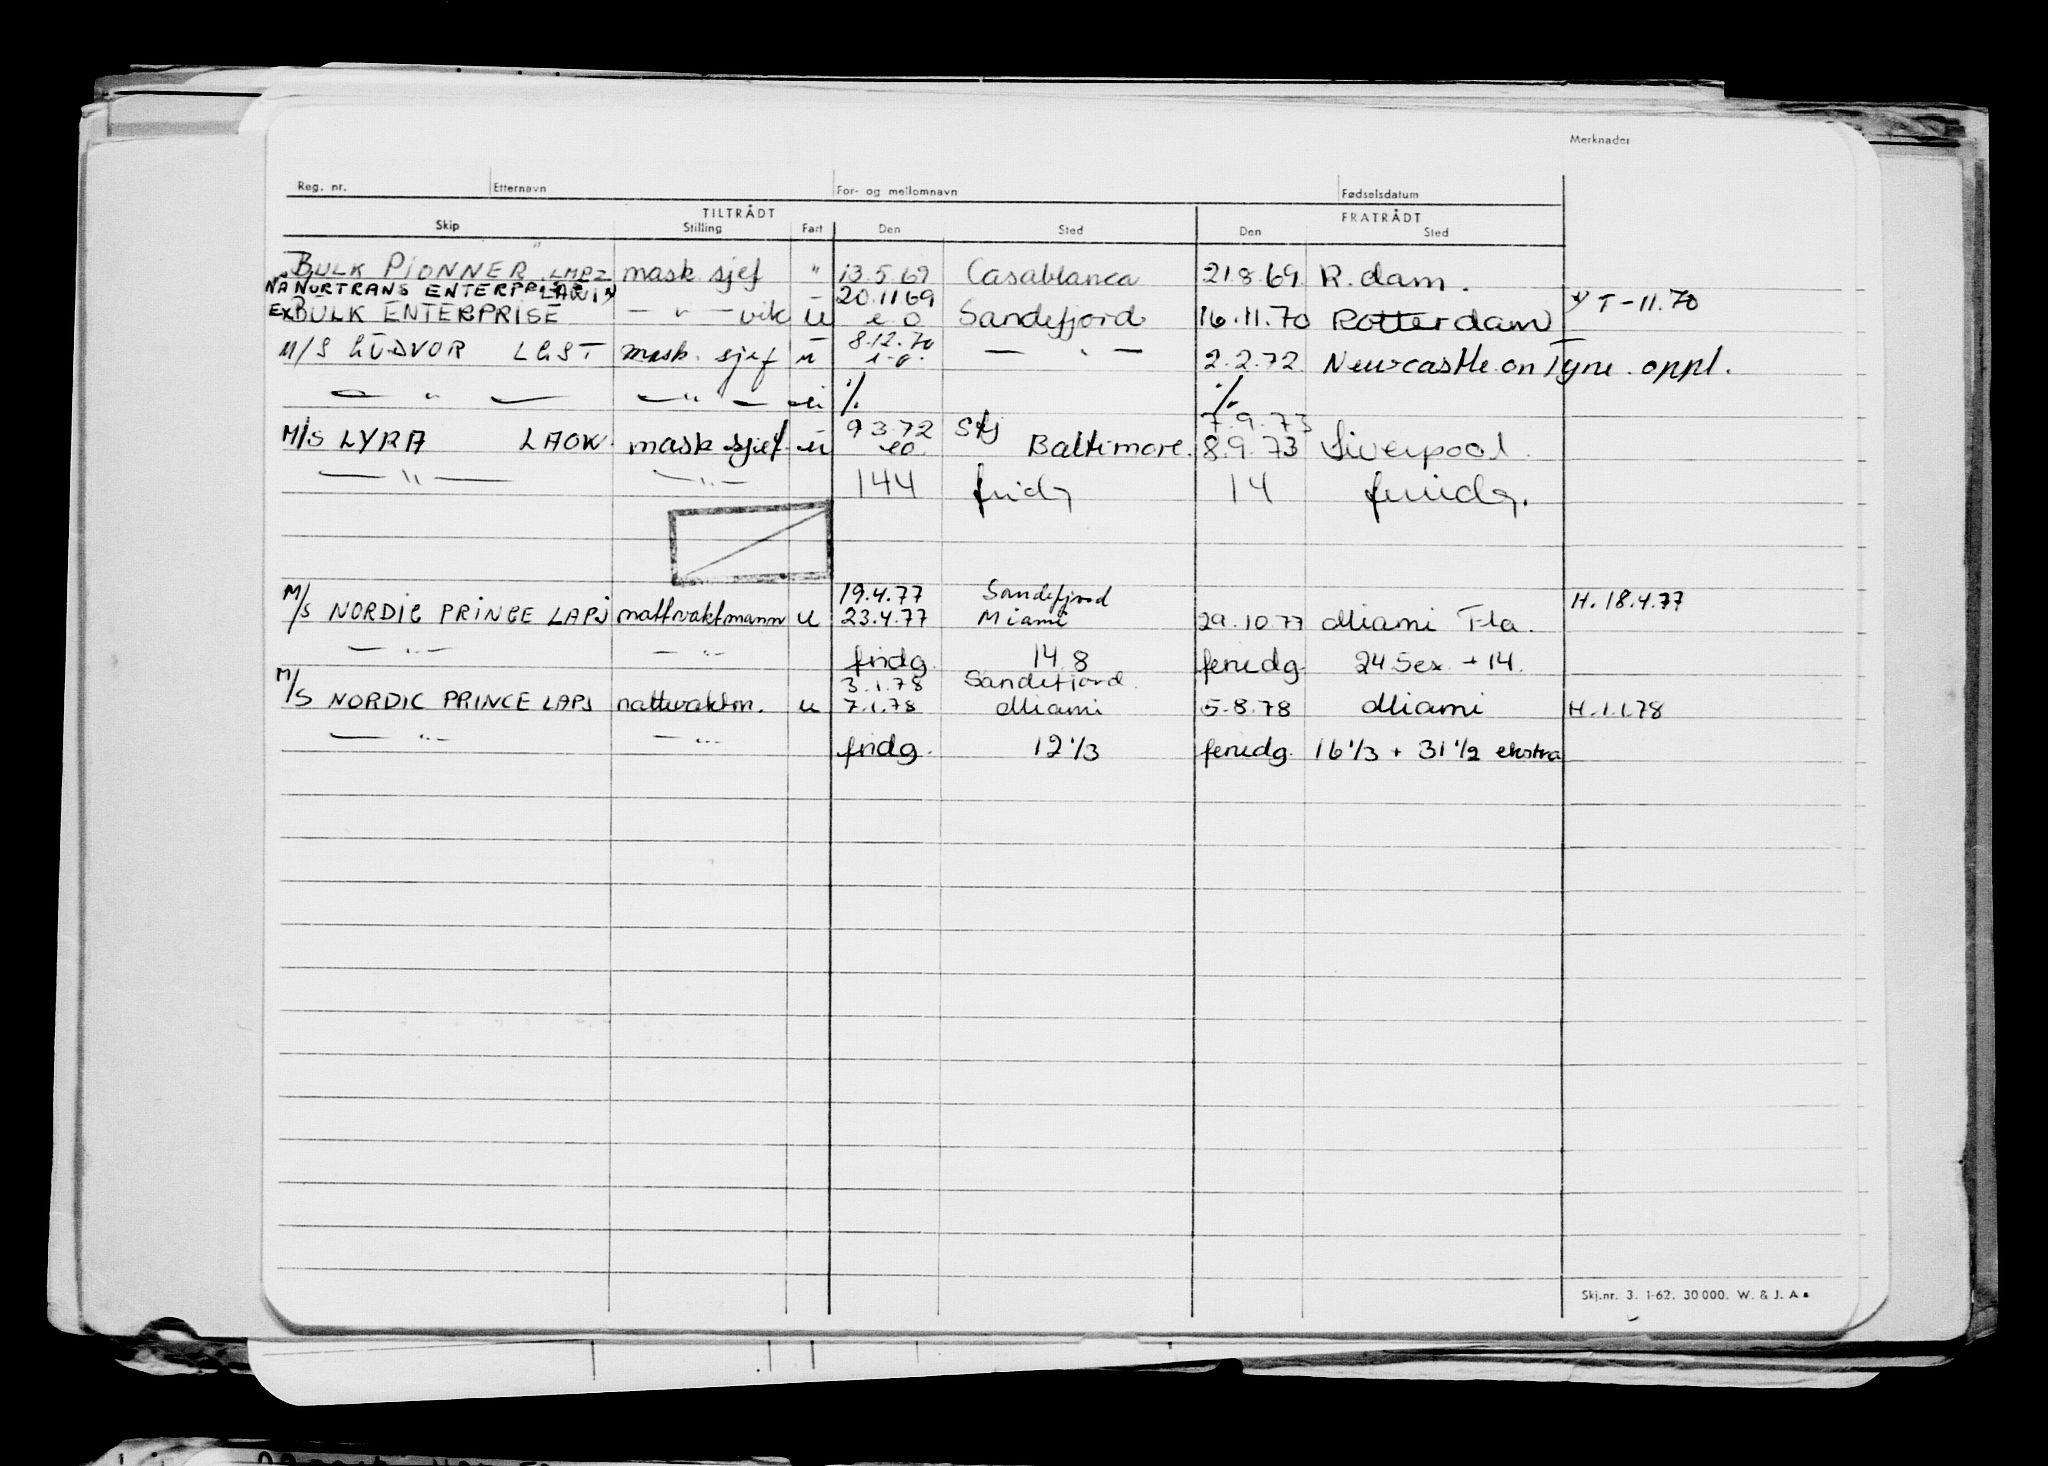 Merknader
Reg. nr. Etternavn For- og mellomnavn Fødselsdatum
TILTRÅDT FRATRÅDT
Skip Stilling Fart Den Sted Den Sted
BULK PIONNER LMPZ mask. sjef " 13.5.69 Casablanca 21.8.69 R.dam.
NA NORTRANS ENTERPRISE 20.11.69
EX BULK ENTERPRISE — " — vik u e.o Sandefjord 16.11.70 Rotterdam T-11.70
8.12.70
M/S GUDVOR LGST mask. sjef u e.o. — " — 2.2.72 Newcastle on Tyne. oppl.
— " — — " — u ./. ./.
9.3.72 7.9.73
M/S LYRA LAOW mask sjef u eo. Baltimore. 8.9.73 Liverpool.
— " — — " — 144 fridg 14 feriedg.
19.4.77 Sandefjord H. 18.4.77
M/S NORDIC PRINCE LAPJ nattvaktmann u 23.4.77 Miami 29.10.77 Miami Fla.
— " — — " — fridg. 14.8 feriedg. 24.5 ex. + 14.
3.1.78 Sandefjord.
M/S NORDIC PRINCE LAPJ nattvaktm. u 7.1.78 Miami 5.8.78 Miami H.1.1.78
— " — — " — fridg. 12 1/3 feriedg. 16 1/3 + 31 1/2 ekstra
Skj.nr. 3. 1-62. 30 000. W. & J. A s